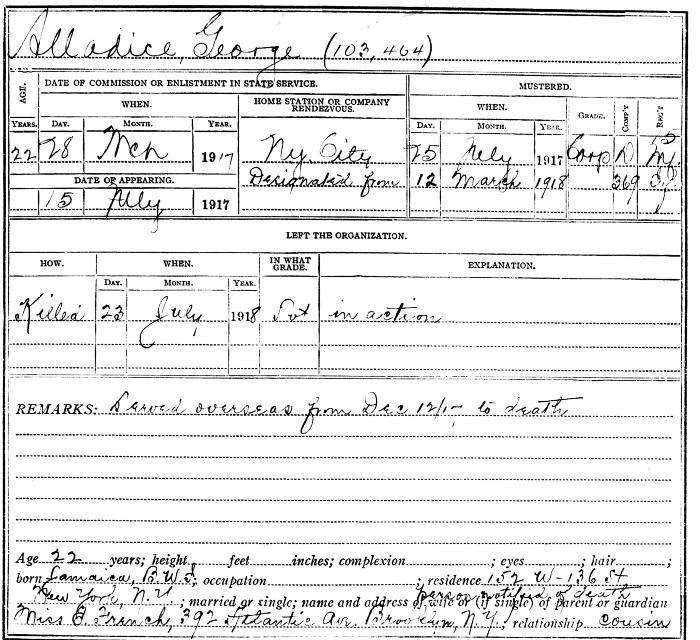 Alladice, George (103,464)
AGE. DATE OF COMMISSION OR ENLISTMENT IN STATE SERVICE. MUSTERED.
WHEN. HOME STATION OR COMPANY RENDEZVOUS. WHEN. GRADE. COMP'Y REG'T
YEARS. DAY. MONTH. YEAR. DAY. MONTH. YEAR.
22 28 Mch 1917 Ny. City 25 July 1917 Corp D 15 NY
DATE OF APPEARING. Designated from 12 March 1918 369 Inf
15 July 1917
LEFT THE ORGANIZATION.
HOW. WHEN. IN WHAT GRADE. EXPLANATION.
DAY. MONTH. YEAR.
Killed 23 July 1918 Pvt in action
REMARKS: Served overseas from Dec 12/17 to death
Age 22 years; height, feet inches; complexion ; eyes ; hair ;
born Jamaica, B.W.I; occupation ; residence 152 W-136 St
New York, N.Y ; person notified of death
married or single; name and address of wife or (if single) of parent or guardian
Miss E. French, 392 Atlantic Ave. Brooklyn, N.Y.; relationship cousin